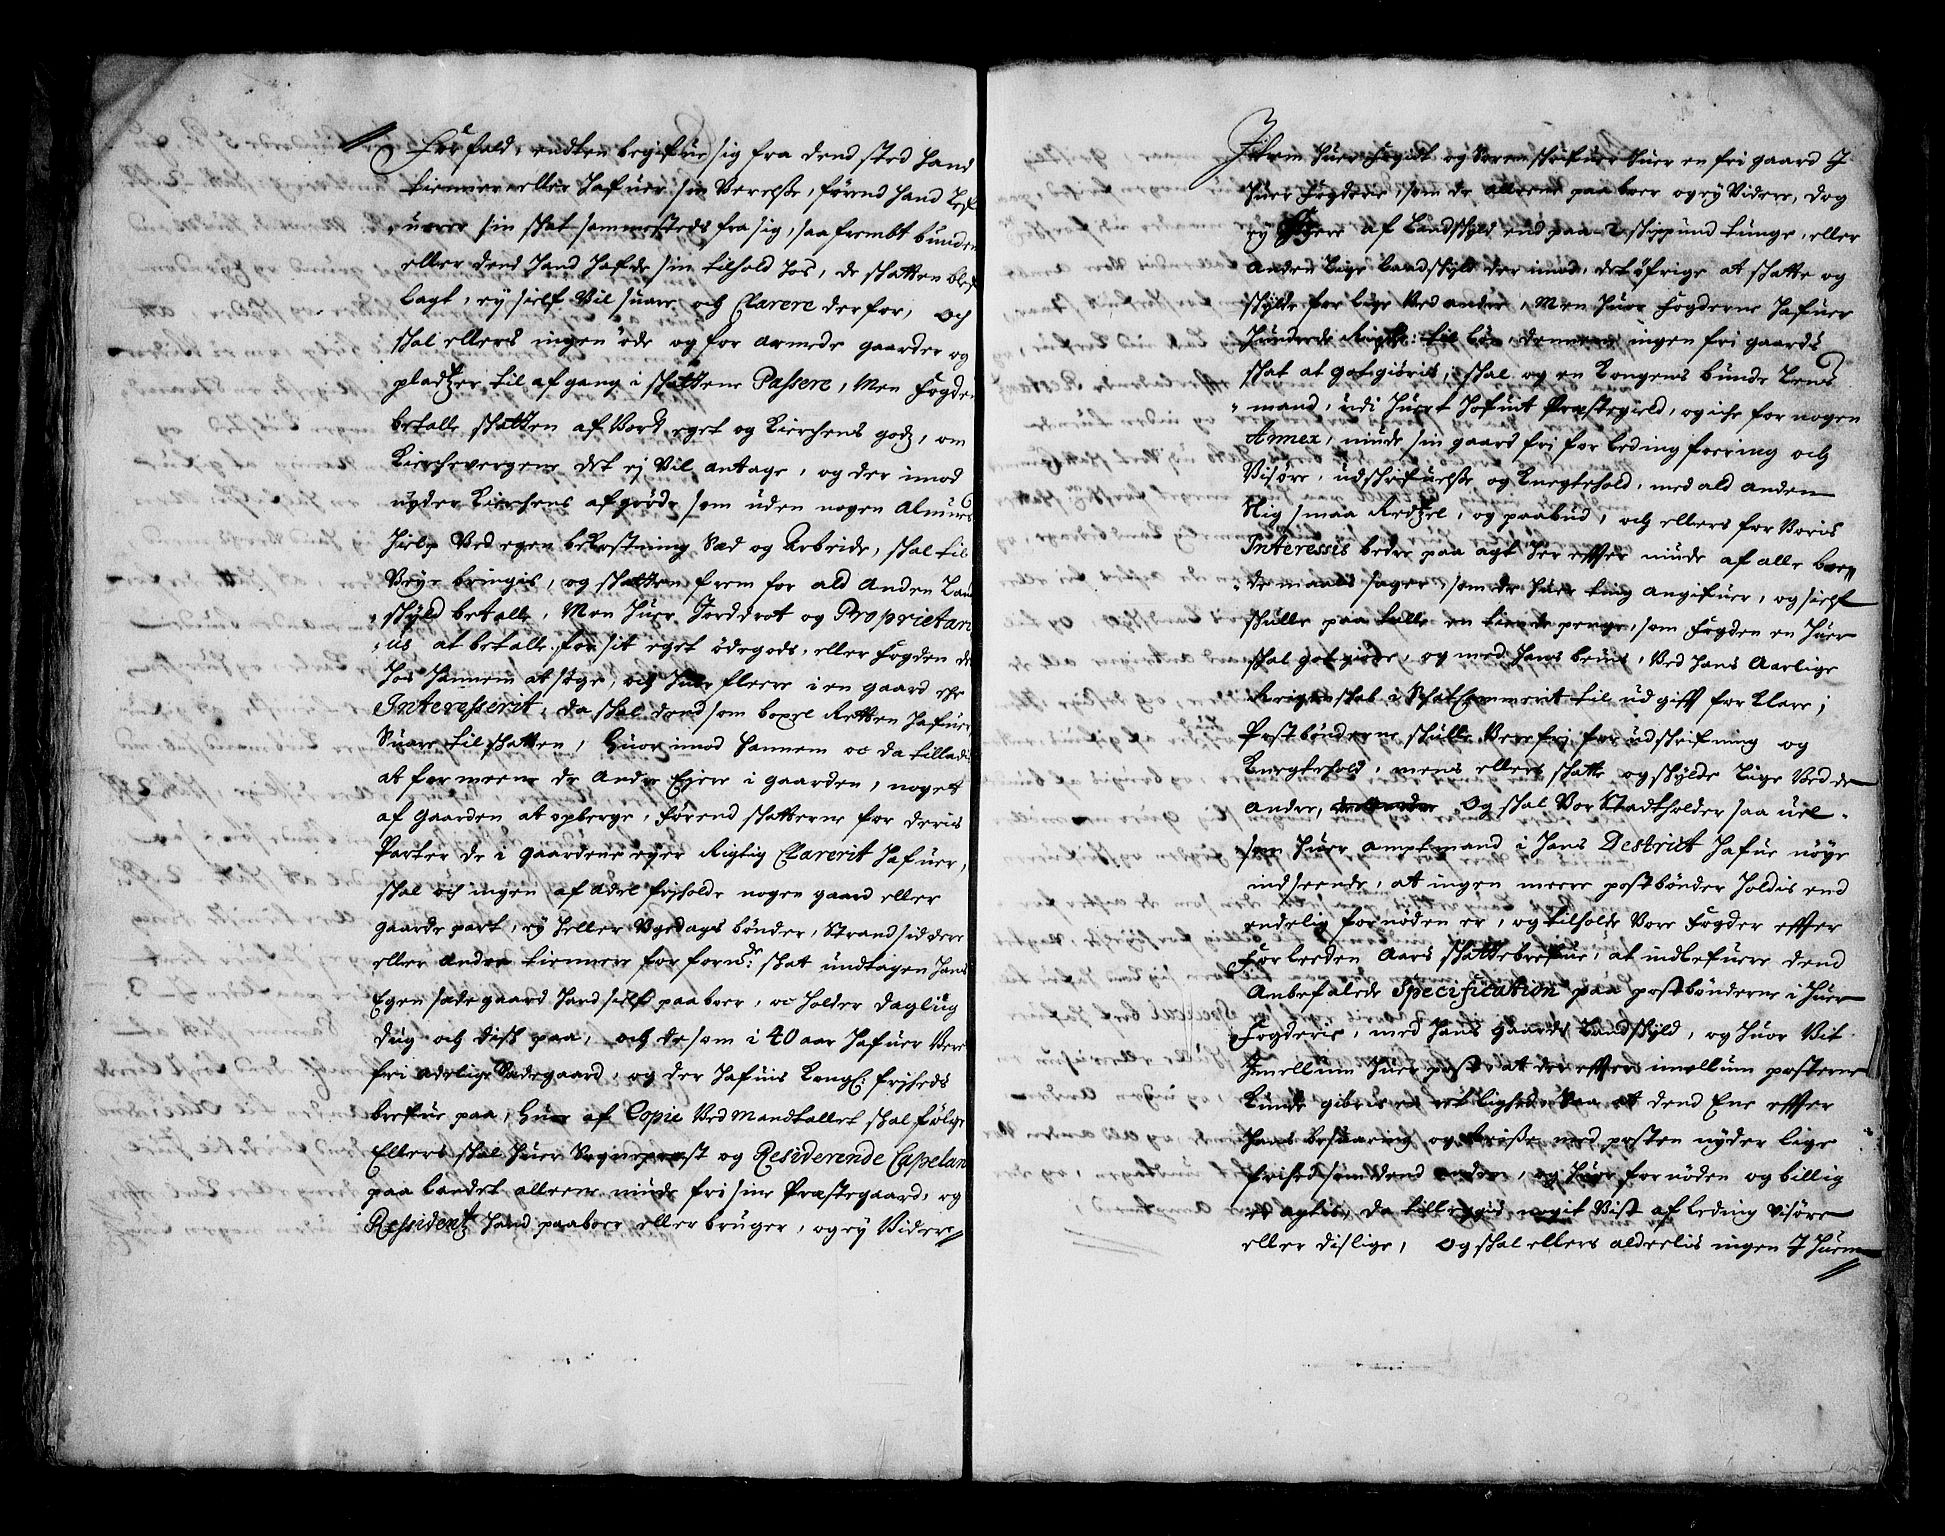 Forfald, endten begifue sig fra dend sted hand
tienner eller hafuer sin Verelße, førend hand lef¬
uerer sin skat sammesteds fra sig, saa frembt bunden
eller dend hand hafde sin tilhold hos, de skatten blef
lagt, ey sielf Vil suare och Clarere derfor, och
skal ellers ingen øde og for armede gaarder og
pladtzer til afgang i skattene Passere, Men Fogden
betalle skatten af Vort eget og Kierchens godtz, om
Kierchevergene det ej Vil antage, og der imod
nyder Kierchens afgrøde som uden nogen Almues
hielp Ved egen bekostning Sæd og Arbeide, skal til
Veye bringis, og skatten frem for ald anden Land
skyld betalle, Men huer Jorddrot og Proprietari
us at betalle for sit eget ødegods, eller Fogden det
hos hannem at søge, och huor fleere i en gaard ere
Interesserit, da skal dend som boxel Retten hafuer
Suare til skatten, Huor imod hannem oc da tilladis
at formeene de andre Ejere i gaarden, noget
af gaarden at opberge, førend skatterne for deris
Parter de i gaardene eyer Rigtig Clarerit hafuer,
skal och ingen af adel friholde nogen gaard eller
gaarde part, ey heller Vgedags bønder, Strandsiddere
eller andre tiennere for forne: skat undtagen hans
Egen sædegaard hand sielf paaboer, oc holder daglig
dug och disk paa, och de som i 40 aar hafuer Veret
fri adelige Sædegaard, og der hafuis Kongl: friheds
brefue paa, Huor af Copie Ved mandtallet skal følge
Ellers skal huer Sogneprest og Residerende Capelan
paa landet alleene niude fri sine Præstegaard, og
Ressidentz hand paaboer eller bruger, og ey Videre
Item huer Fogidt og Sorenskrifuer huer en fri gaard I
huer Fogderie, som de alleene paaboer og ey Videre, dog
ey høyere af Landskyld end paa 2 skippund tunge, eller
anden lige landskyld der imod, det øfrige at skatte og
skylde for lige Ved andre, Men huor Fogderne hafuer
hunderde Rixdr: til løn, dennem ingen fri gaards
skat at godtgiøris, skal og en Kongens bunde Lens
mand, udi huert hofuit Præstegield, og iche for nogen
Annex, niude sin gaard fri for Leding foering och
Visøre, udskrifuelße og Knegtehold, med ald anden
slig smaa Redtzel, og paabud, och ellers for Voris
Interessis bedre paa agt her effter niude af alle bøe
demaals sager, som de huer ting angifuer, og sielf
skulle paa talle en tiende penge, som Fogden en huer
skal got giøre, og med hans beuis, Ved hans Aarlige
Reignskab i Skatkammerit til udgift forklare;
Postbønderne skulle Vere fri for udskrifning og
Knegtehold, mens ellers skatte og skylde lige Ved de
andre, og skal Vor Stadtholder saa uel
som huer amptmand i hans Destrict hafue nøye
indseende, at ingen meere postbønder holdis end
endelig fornøden er, og tilholde Vore Fogder effter
Forleeden Aars skattebrefue, at indlefuere dend
Anbefalede Specification paa postbønderne i huer
Fogderie, med hans gaards Landskyld, og huor Vit
Imellum huer post, at der effter imellum posterne
kunde giøres en lighed, Saa at dend Ene effter
hans besuaring og Reiße med posten nyder lige
frihed som dend anden, og huor fornøden og billig
at agtis, da tillegges nogit Vist af leding Visøre
eller dislige, Og skal ellers alderlis ingen I huem